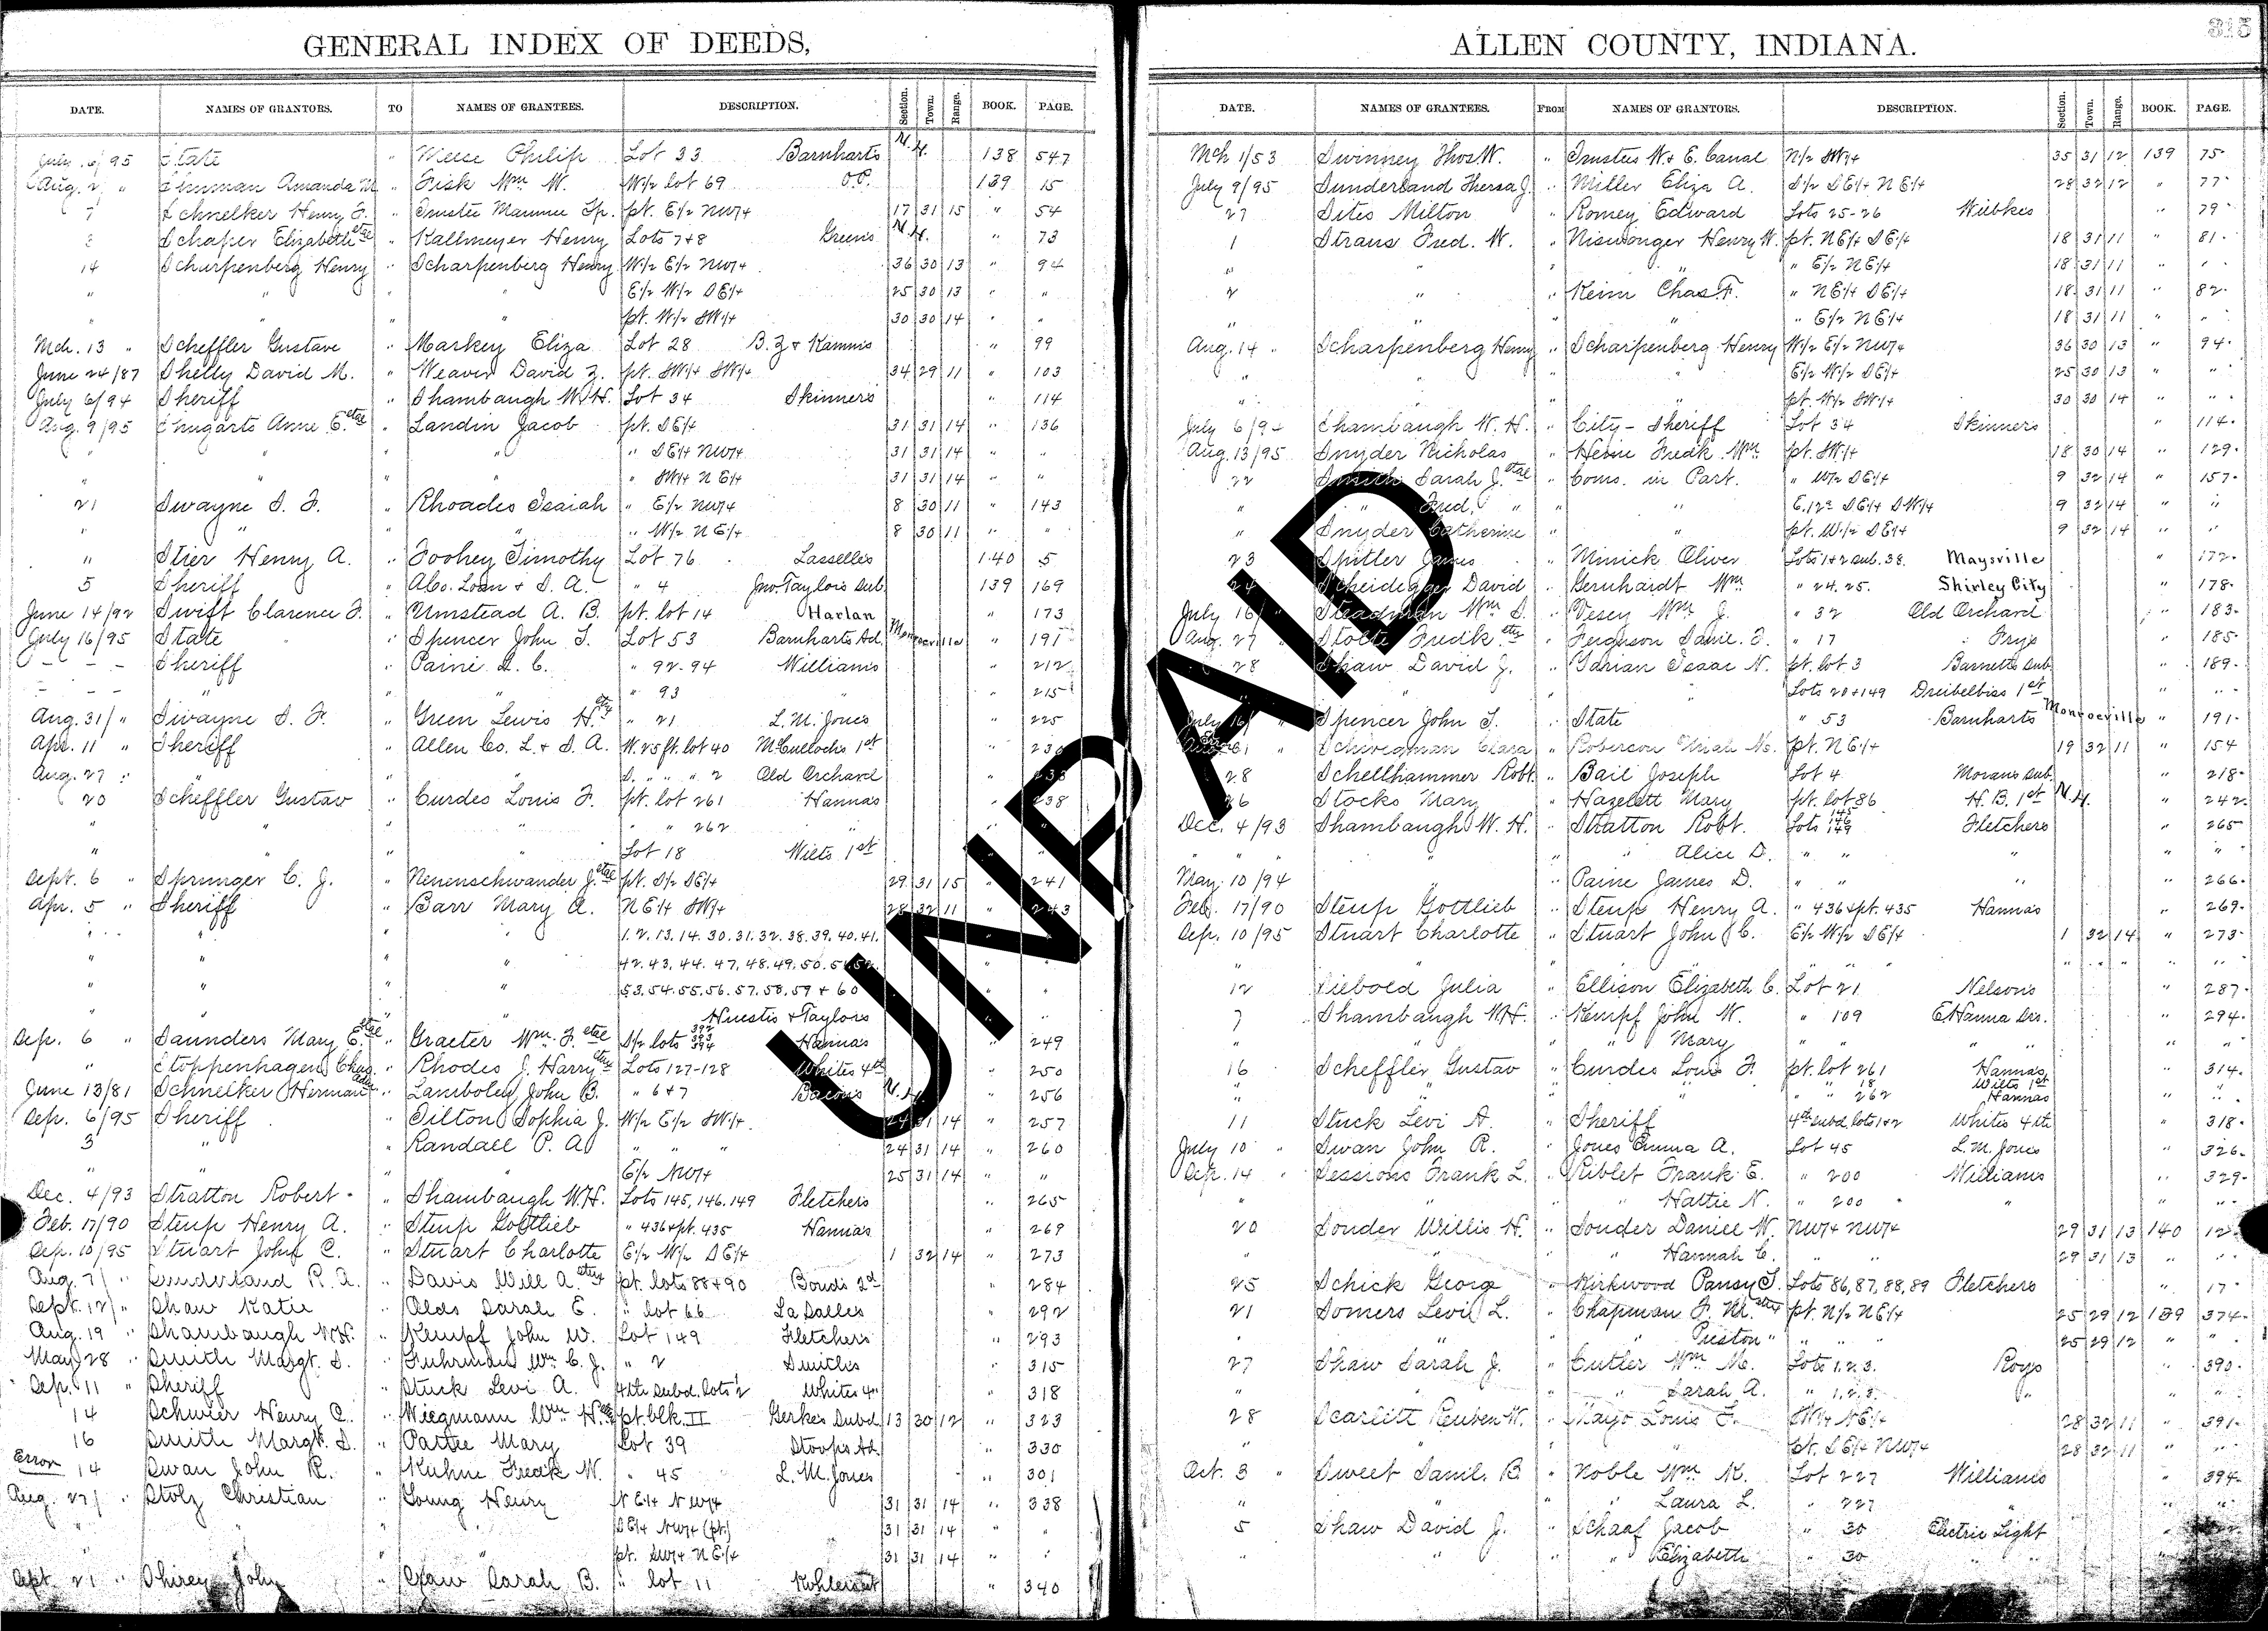 GENERAL INDEX OF DEEDS,
DATE. NAMES OF GRANTORS. TO NAMES OF GRANTEES. DESCRIPTION. Section. Town. Range. BOOK. PAGE.
July 6/95 State " Meese Philip Lot 33 Barnharts N.H. 138 547
Aug. 2 " Amanda M " Fisk Wm W. W1/2 lot 69 O.P. 139 15
7 Schnelker Henry F. " Trustee Maumee Tp. pt. E1/2 NW1/4 17 31 15 " 54
Schaper Elizabeth etal " Kallmeyer Henry Lots 7+8 Greens N.H. " 73
14 Scharpenberg Henry " Scharpenberg Henry W1/2 E1/2 NW1/4 36 30 13 " 94
" " " " E1/2 W1/2 SE1/4 25 30 13 " "
" " " " pt. W1/2 SW1/4 30 30 14 " "
Mch. 13 " Scheffler Gustave " Markey Eliza Lot 28 B.Z + Kamms " 99
June 24/87 Shelly David M. " Weaver David Z. pt. SW1/4 SW1/4 34 29 11 " 103
July 6/94 Sheriff " Shambaugh W.H. Lot 34 Skinners " 114
Aug. 9/95 Anne E. etal " Landin Jacob pt. SE1/4 31 31 14 " 136
" " " " " SE1/4 NW1/4 31 31 14 " "
" " " " " SW1/4 NE1/4 31 31 14 " "
21 Swayne S. F. " Rhoades Isaiah " E1/2 NW1/4 8 30 11 " 143
" " " " " W1/2 NE1/4 8 30 11 " "
" Stier Henry A. " Toohey Timothy Lot 76 Lasselles 140 5
5 Sheriff " A Co. Loan + S. A. " 4 Jno. Taylors Sub. 139 169
June 14/92 Swift Clarence F. " Umstead A. B. pt. lot 14 Harlan " 173
July 16/95 State " Spencer John T. Lot 53 Barnharts Ad. Monroeville " 191
- - - Sheriff " Paine L. C. " 92-94 Williams " 212
- - - " " " " 93 " " 215
Aug. 31/ " Swayne S. F. " Green Lewis H. etux " 21 L. M. Jones " 225
Apr. 11 " Sheriff " Allen Co. L. + S. A. W. 25 ft. lot 40 McCullochs 1st "
Aug. 27 " " " " S. " " " 2 Old Orchard "
20 Scheffler Gustav " Curdes Louis F. pt. lot 261 Hannas 238
" " " " " " 262 "
" " " " Lot 18 Wilts 1st
Sept. 6 " Springer C. J. " Nenenschwander J. etal pt. S1/2 SE1/4 29 31 15 " 241
Apr. 5 " Sheriff " Barr Mary A. NE1/4 SW1/4 28 32 11 " 243
" " " " 1. 2. 13. 14. 30. 31. 32. 38. 39. 40. 41.
" " " " 42. 43. 44. 47. 48. 49. 50. 51. 52.
" " " " 53. 54. 55. 56. 57. 58. 59 + 60
" " Huestis + Taylors
Sep. 6 " Saunders Mary E. etal " Graeter Wm. F. etal S1/2 lots 392 393 394 Hannas " 249
" Stoppenhagen Chas. " Rhodes J. Harry etux Lots 127-128 Whites 4th " 250
June 13/81 Schnelker Herman " Lamboley John B. " 6+7 Bacons N.H. " 256
Sep. 6/95 Sheriff " Tilton Sophia J. W1/2 E1/2 SW1/4 24 31 14 " 257
3 " " Randall P. A. " " " 24 31 14 " 260
" " " " E1/2 NW1/4 25 31 14 " "
Dec. 4/93 Stratton Robert " Shambaugh W.H. Lots 145, 146, 149 Fletchers " 265
Feb. 17/90 Steup Henry A. " Steup Gottlieb " 436 + pt. 435 Hannas " 269
Sep. 10/95 Stuart John C. " Stuart Charlotte E1/2 W1/2 SE1/4 1 32 14 " 273
Aug. 7/ " Sunderland R. A. " Davis Will A. etux pt. lots 88+90 Bonds 2d " 284
Sept. 12/ " Shaw Katie " Olds Sarah E. " lot 66 La Salles " 292
Aug. 19 " Shambaugh W.H. " Kempf John W. Lot 149 Fletchers " 293
May 28 " Smith Margt. S. " Fuhrman Wm. C. J. " 2 Smiths " 315
Sep. 11 " Sheriff " Stuck Levi A. 4th Subd. lots 1 2 Whites 4" " 318
14 Schwier Henry C. " Wiegmann Wm. H. pt. blk. II Gerkes Subd 13 30 12 " 323
16 Smith Margt. S. " Partee Mary Lot 39 Stoops Ad. " 330
Error 14 Swan John R. " Kuhne Fredk W. " 45 L. M. Jones " 301
Aug. 27/ " Stolz Christian " Young Henry NE1/4 NW1/4 31 31 14 " 338
" " " SE1/4 NW1/4 (pt.) 31 31 14 " "
" " " pt. SW1/4 NE1/4 31 31 14 " "
Sept. 21 " Shirey John " Sarah B. " lot 11 " 340
ALLEN COUNTY, INDIANA.
315
DATE. NAMES OF GRANTEES. FROM NAMES OF GRANTORS. DESCRIPTION. Section. Town. Range. BOOK. PAGE.
Mch 1/53 Swinney Thos W. " Trustees W. + E. Canal N1/2 SW1/4 35 31 12 139 75
July 9/95 Sunderland Theresa J. " Miller Eliza A. S1/2 SE1/4 NE1/4 28 32 12 " 77
27 Sites Milton " Romey Edward Lots 25-26 Wiebkes " 79
1 Straus Fred. W. " Niswonger Henry W. pt. NE1/4 SE1/4 18 31 11 " 81
" " " " " E1/2 NE1/4 18 31 11 " "
2 " " Keim Chas. F. " NE1/4 SE1/4 18 31 11 " 82
" " " " E1/2 NE1/4 18 31 11 " "
Aug. 14 " Scharpenberg Henry " Scharpenberg Henry W1/2 E1/2 NW1/4 36 30 13 " 94
" " " " E1/2 W1/2 SE1/4 25 30 13 " "
" " " " pt. W1/2 SW1/4 30 30 14 " "
July 6/94 Shambaugh W. H. " City - Sheriff Lot 34 Skinners " 114
Aug. 13/95 Snyder Nicholas " Heine Fredk Wm. pt. SW1/4 18 30 14 " 129
22 Smith Sarah J. etal " Coms. in Part. " W1/2 SE1/4 9 32 14 " 157
" " Fred. " " " E. 12a SE1/4 SW1/4 9 32 14 " "
" Snyder Catherine " " pt. W1/2 SE1/4 9 32 14 " "
23 Spitler James " Minick Oliver Lots 1+2 sub. 38. Maysville " 172
24 Scheidegger David " Gernhardt Wm " 24. 25. Shirley City " 178
July 16/ " Steadman Wm S. " Vesey Wm. J. " 32 Old Orchard " 183
Aug. 27 " Stolte Fredk etux " Ferguson Saml. F. " 17 Frys " 185
28 Shaw David J. " Isaac N. pt. lot 3 Barnetts Sub. " 189
" " " Lots 20+149 Dreibelbiss 1st " "
July 16/ " Spencer John T. " State " 53 Barnharts Monroeville " 191
Schwegman Clara " Roberson Uriah Ns. pt. NE1/4 19 32 11 " 154
28 Schellhammer Robt. " Bail Joseph Lot 4 Morans Sub. " 218
26 Stocks Mary " Hazelett Mary pt. lot 86 H. B. 1st N.H. " 242
Dec. 4/93 Shambaugh W. H. " Stratton Robt. Lots 145 146 149 Fletchers " 265
" " " " " Alice D. " " " " "
May. 10/94 " " Paine James D. " " " " 266
Feb. 17/90 Steup Gottlieb " Steup Henry A. " 436 + pt. 435 Hannas " 269
Sep. 10/95 Stuart Charlotte " Stuart John C. E1/2 W1/2 SE1/4 1 32 14 " 273
" " " " " " " " " " "
12 Siebold Julia " Ellison Elizabeth C. Lot 21 Nelsons " 287
7 Shambaugh W.H. " Kempf John W. " 109 E Hanna Drs. " 294
" " " " Mary " " " " "
16 Scheffler Gustav " Curdes Louis F. pt. lot 261 Hannas " 314
" " " " " " 18 Wilts 1st
" " " " " 262 Hannas " "
11 Stuck Levi A. " Sheriff 4th subd. lots 1+2 Whites 4th " 318
July 10 " Swan John R. " Jones Emma A. Lot 45 L. M. Jones " 326
Sep. 14 " Sessions Frank L. " Riblet Frank E. " 200 Williams " 329
" " " Hattie N. " 200 " " "
20 Souder Willis H. " Souder Daniel W. NW1/4 NW1/4 29 31 13 140 12
" " " " Hannah C. " " 29 31 13 " "
25 Schick Georg " Kirkwood Pansy T. Lots 86, 87, 88, 89 Fletchers " 17
21 Somers Levi L. " Chapman F. M. etux pt. N1/2 NE1/4 25 29 12 139 374
" " " " Preston " " " " 25 29 12 " "
27 Shaw Sarah J. " Cutler Wm M. Lots 1. 2. 3. Roys " 390
" " " " Sarah A. " 1. 2. 3. " " "
28 Scarlett Reuben W. " Mayo Louis F. SW1/4 NE1/4 28 32 11 " 391
" " " " pt. SE1/4 NW1/4 28 32 11 " "
Oct. 3 " Sweet Saml. B " Noble Wm K. Lot 227 Williams " 394
" " " " Laura L. " 227 " " "
5 Shaw David J. " Schaaf Jacob " 30 Electric Light
" " " " Elizabeth " 30 "
UNPAID